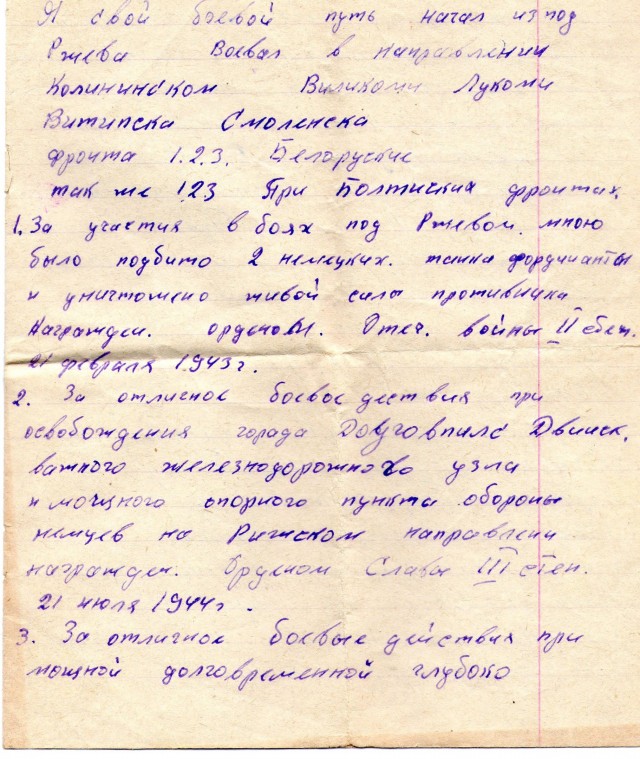 Я свой боевой путь начал из под
Ржева Воевал в направлении
Колининском Виликоми Лукоми
Витипска Смоленска
фронта 1.2.3. Белоруские
так же 123 При Болтиских фронтах.
1. За участия в боях под Ржевом. мною
было подбито 2 немецких. танка фординанты
и уничтожено живой силы противника
Награжден. орденом. Отеч. войны II степ.
21 февраля 1943г.
2. За отлисное боевое дествия при
освобождения города Доуговпилс Двинск.
важного железнодорожного узла
и мощного опорного пункта обороны
немцев на Рижском направлени
награжден. Орденом Славы III степ.
21 июля 1944г.
3. За отличное боевые действия при
мощной долговременной глубоко